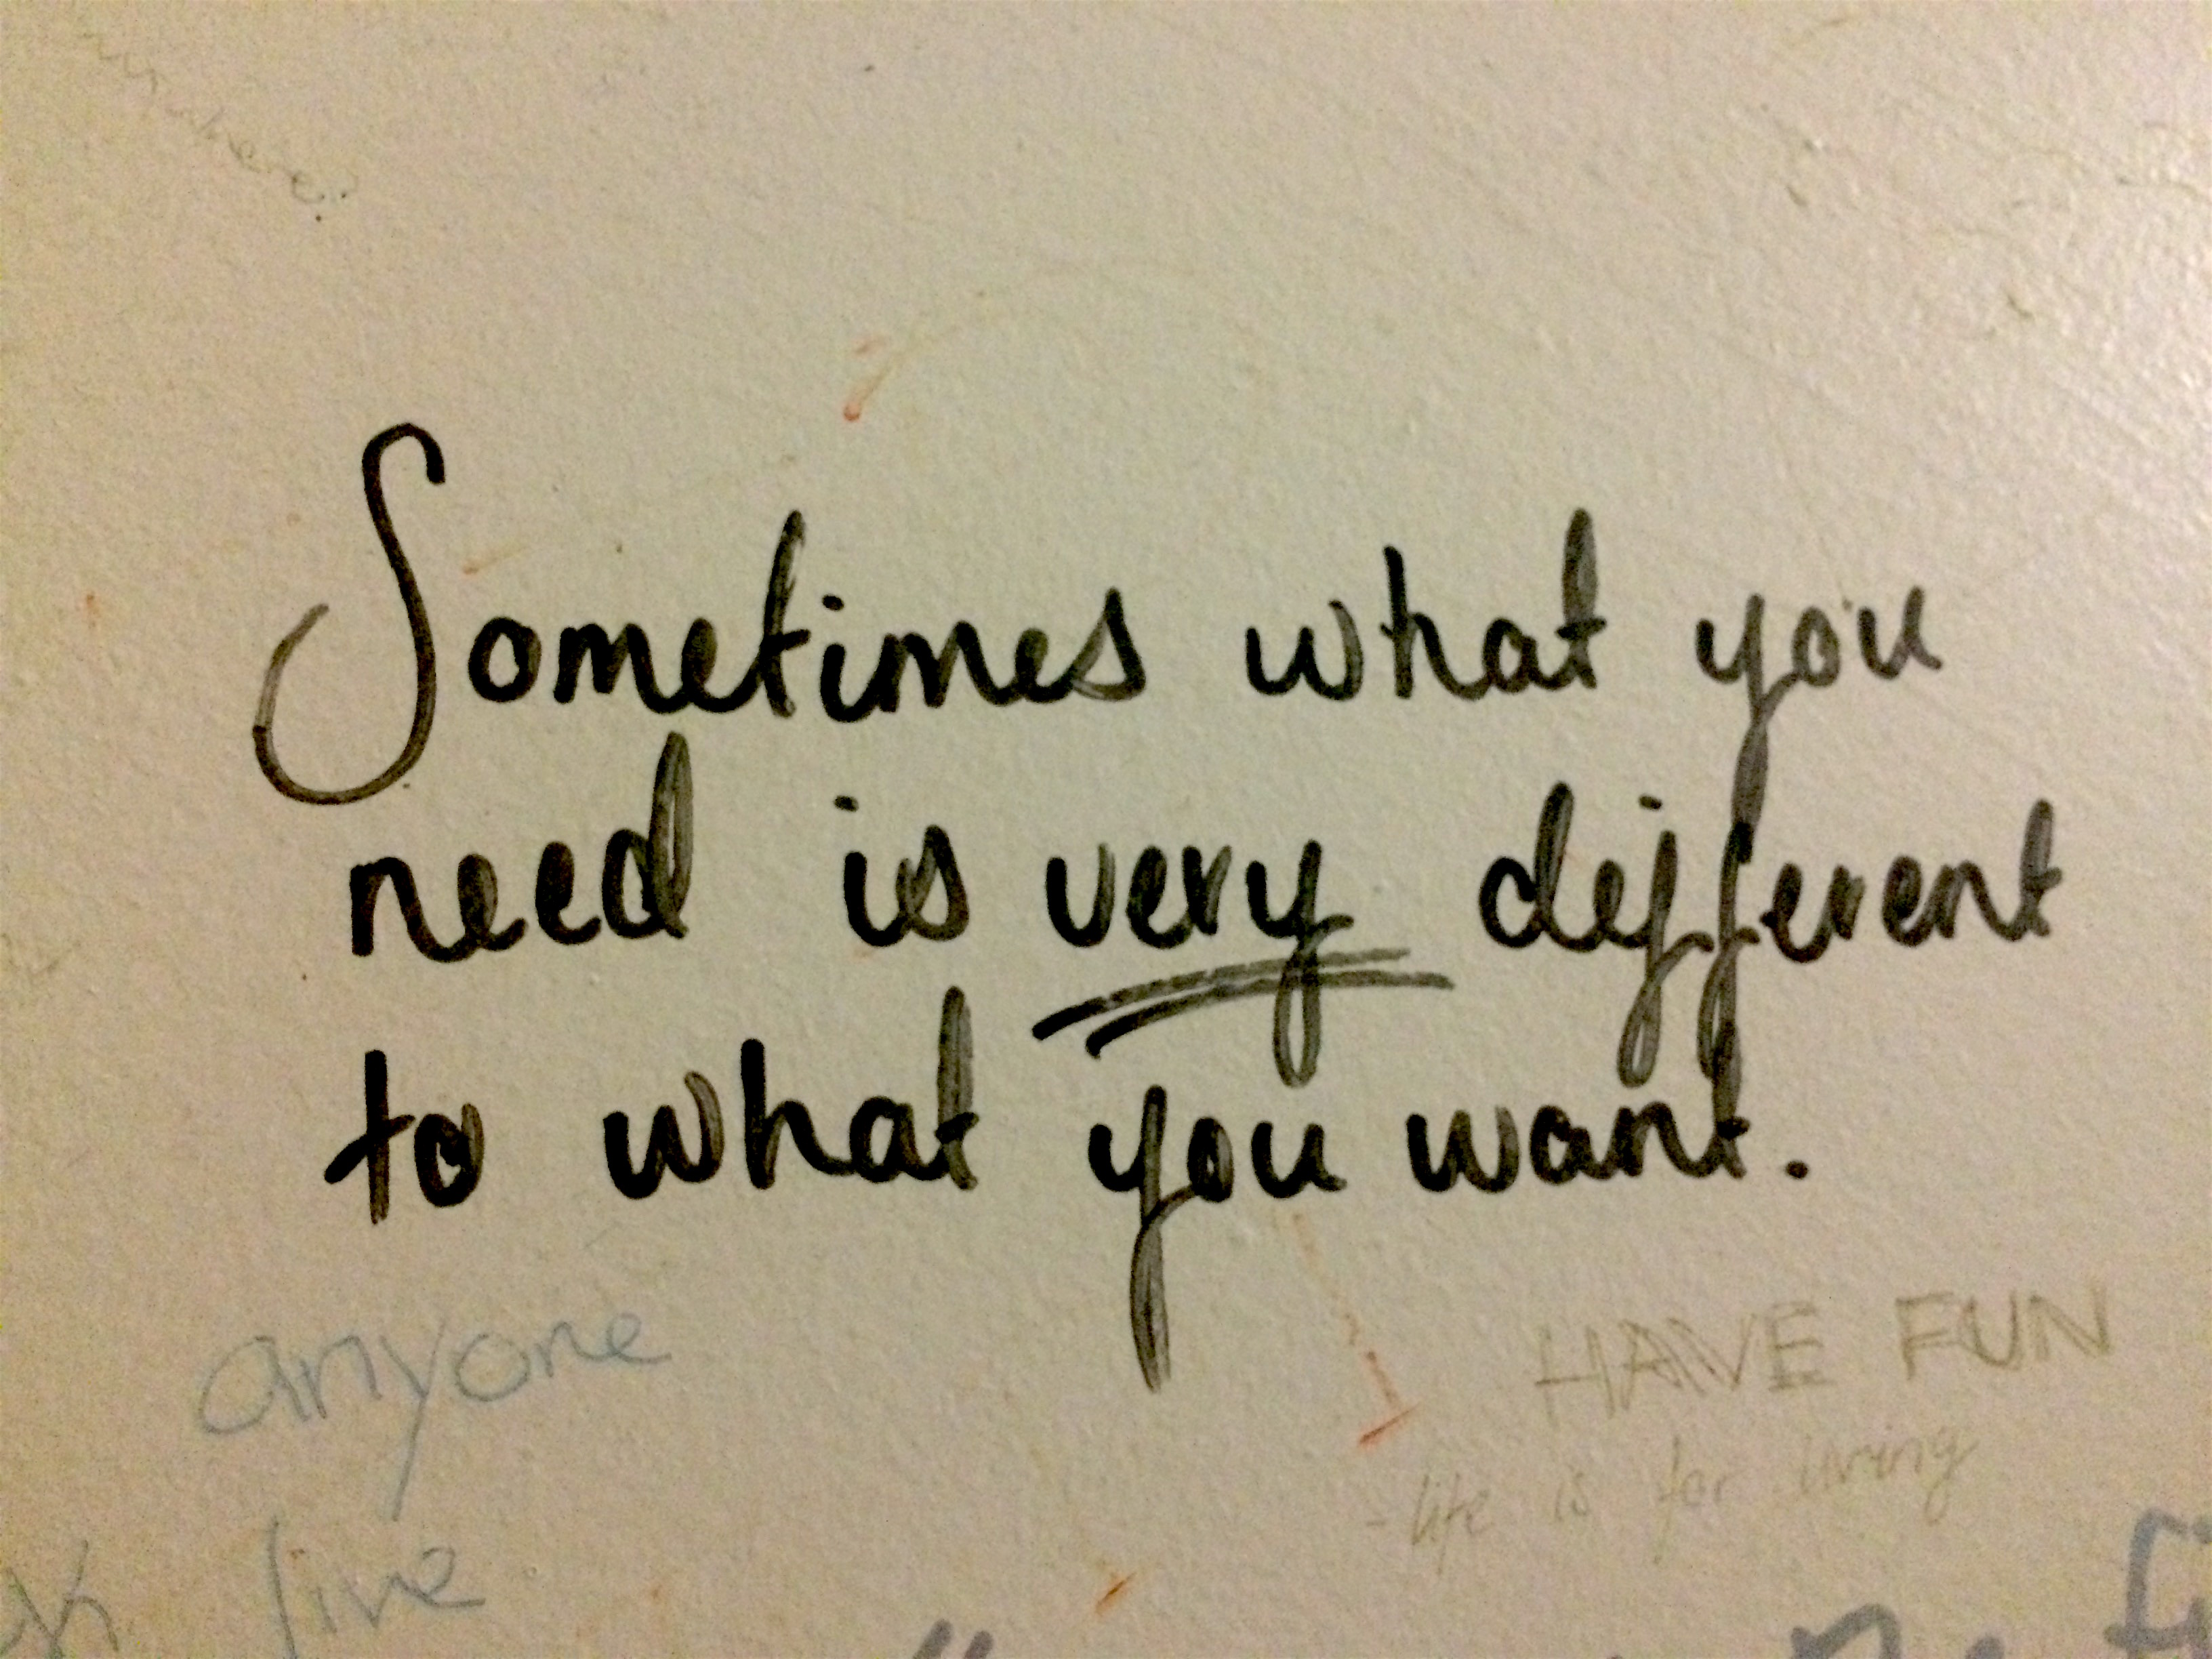 Sometimes what you
need is very different
to what you want.
anyone
HAVE FUN
- life is for living
live